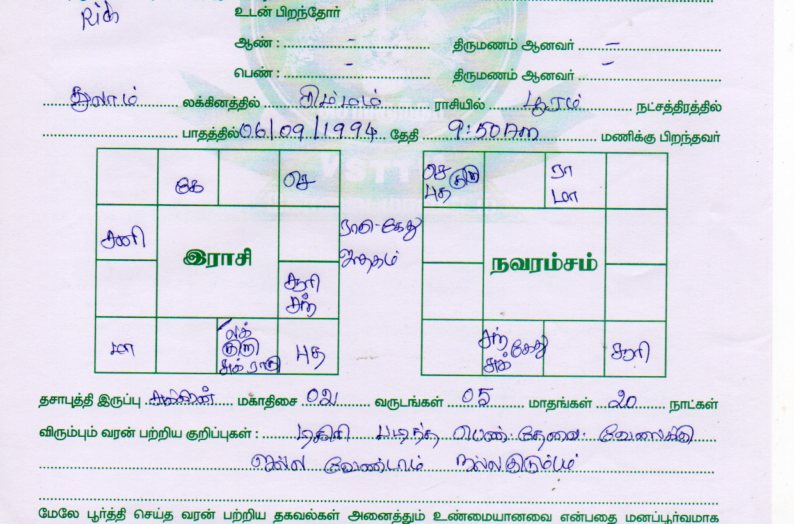 Rich
உடன் பிறந்தோர்
ஆண் : – திருமணம் ஆனவர் –
பெண் : – திருமணம் ஆனவர் –
துலாம் லக்கினத்தில் சிம்மம் ராசியில் பூரம் நட்சத்திரத்தில்
பாதத்தில் 06/09/1994 தேதி 9:50Am மணிக்கு பிறந்தவர்
கே செ
சனி
இராசி
ராகு-கேது
ஜாதகம்
சூரி
சந்
மா
லக்
குரு
சுக் ராகு
புத
செ குரு
புத
ரா
மா
நவரம்சம்
சந் கேது
சுக்
சூரி
தசாபுத்தி இருப்பு சுக்கிரன் மகாதிசை 02 வருடங்கள் 05 மாதங்கள் 20 நாட்கள்
விரும்பும் வரன் பற்றிய குறிப்புகள் : டிகிரி படித்த பெண் தேவை. வேலைக்கு
செல்ல வேண்டாம் நல்ல குடும்பம்
மேலே பூர்த்தி செய்த வரன் பற்றிய தகவல்கள் அனைத்தும் உண்மையானவை என்பதை மனப்பூர்வமாக